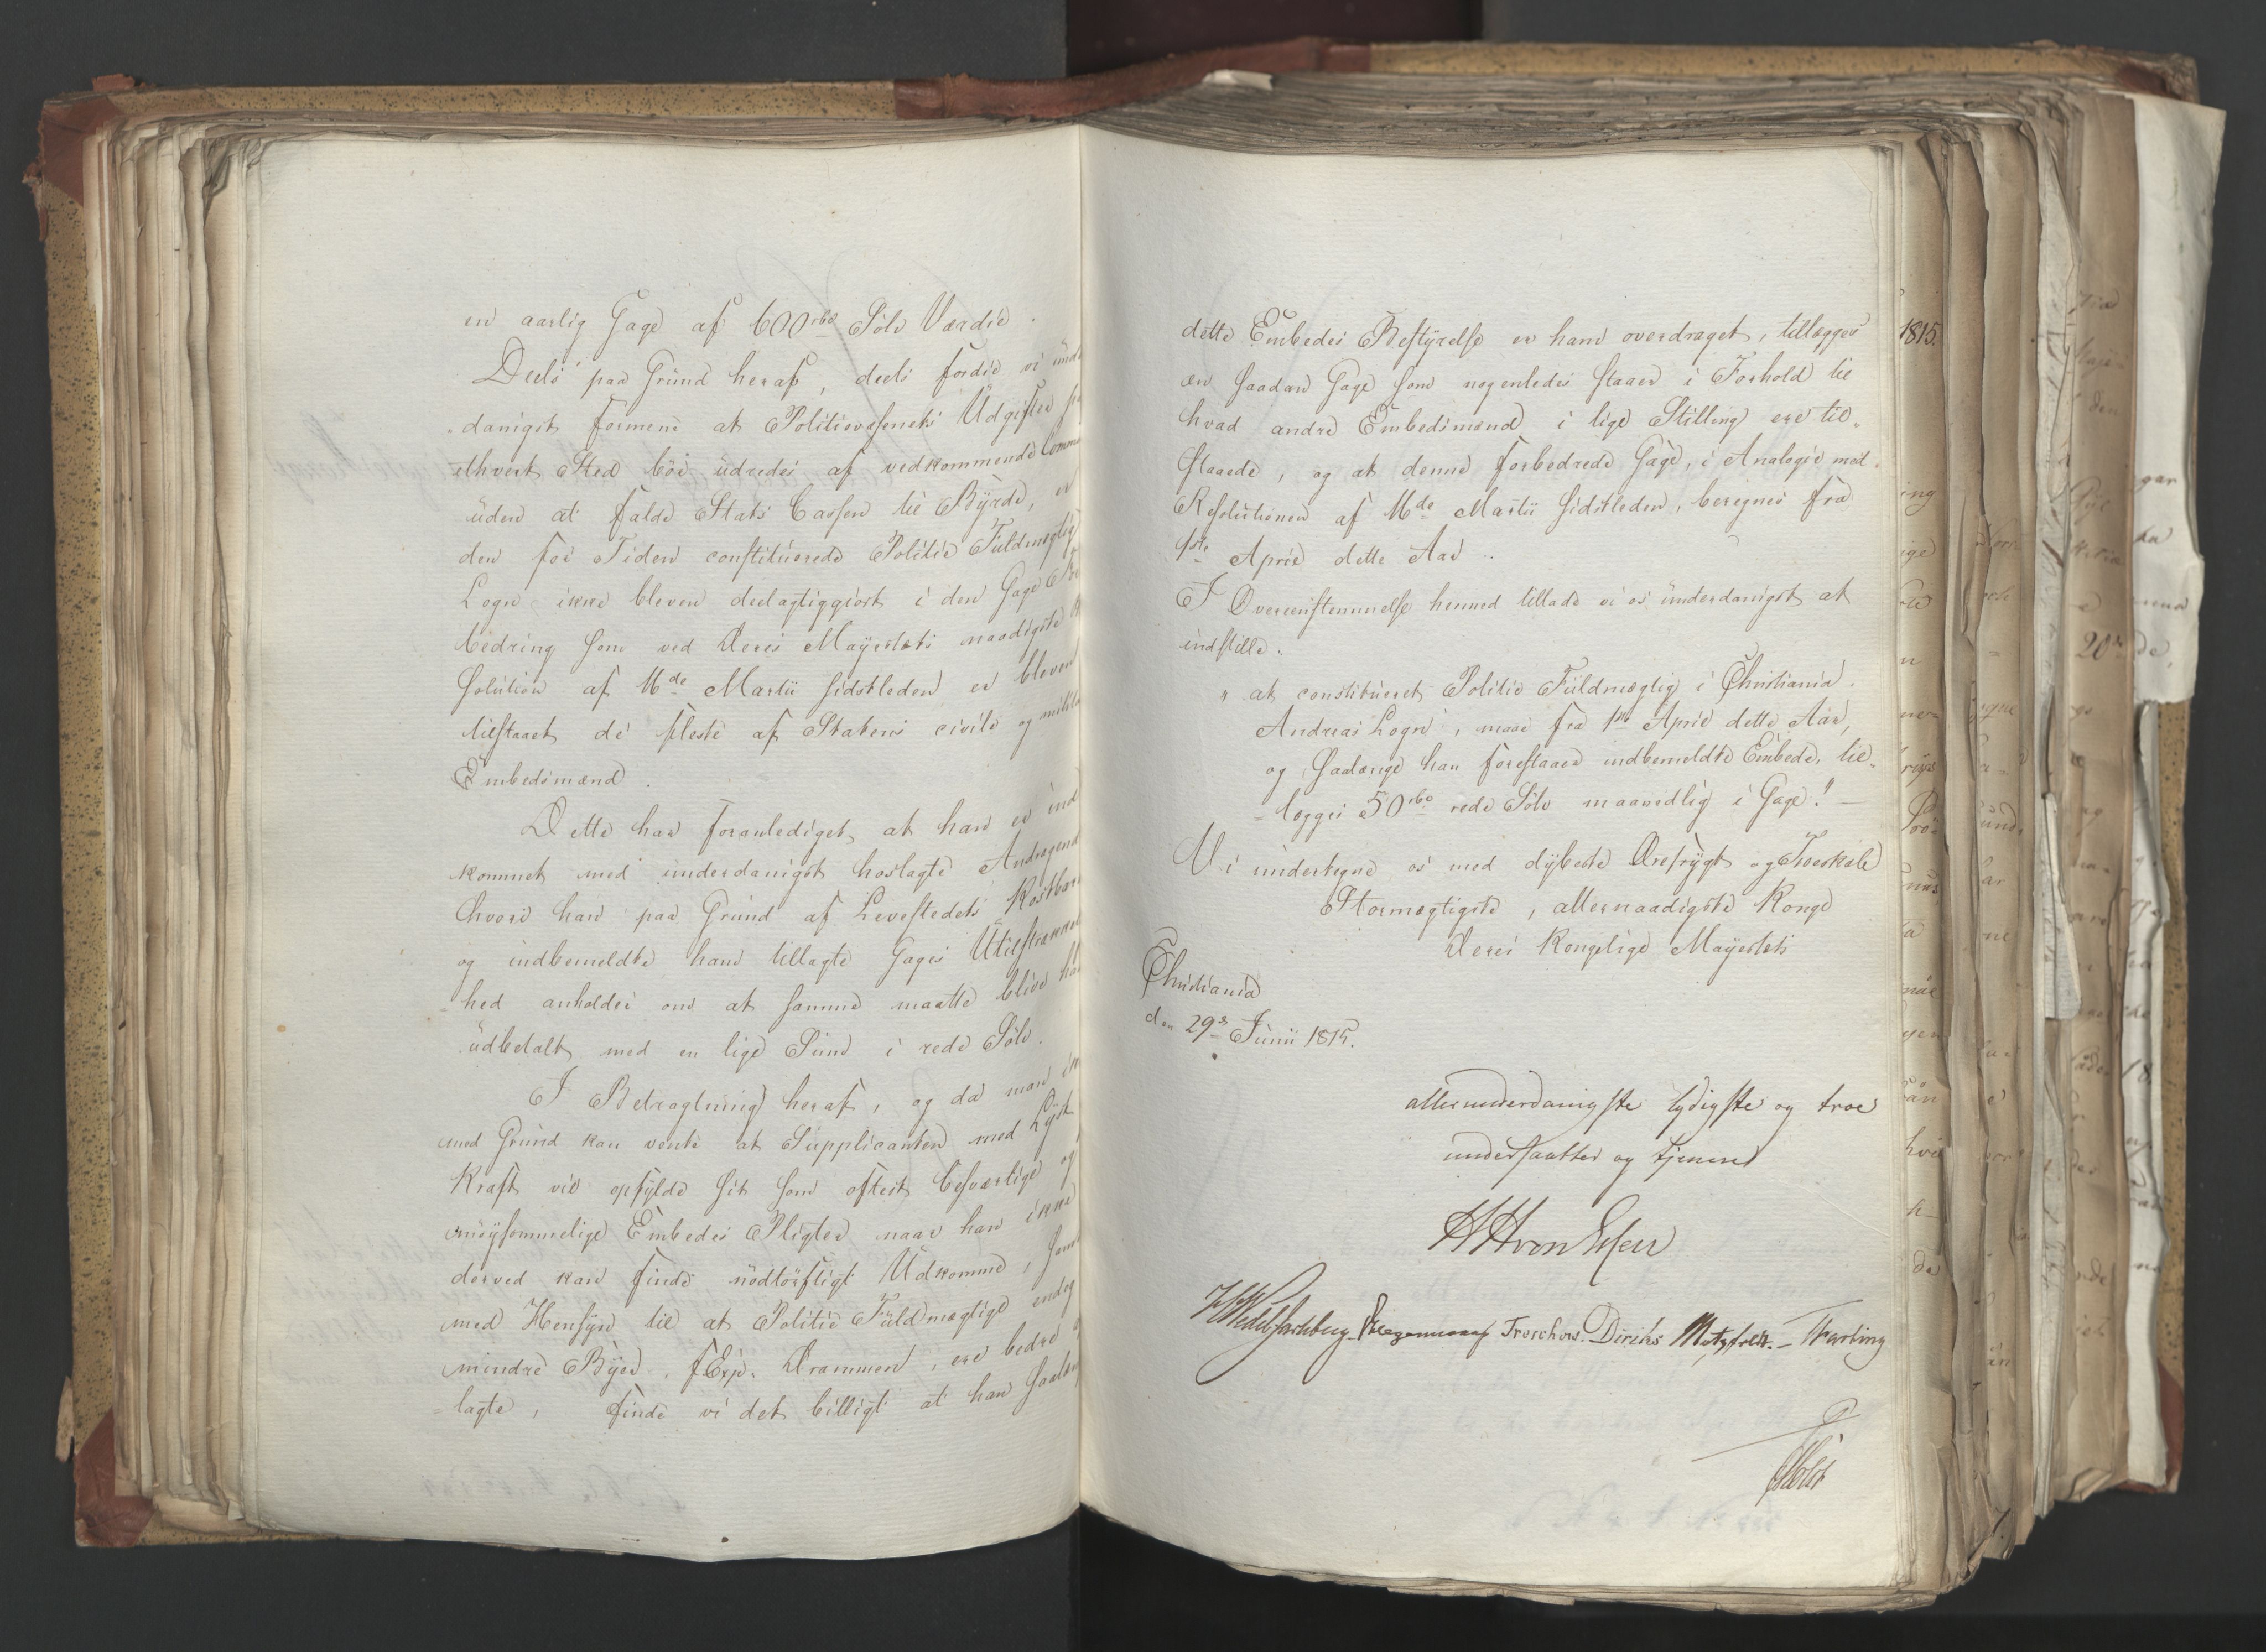 en aarlig Gage af 600 rbd Sølv Værdie.
Deels paa Grund heraf, deels fordie vi und
danigst formene at Politievæsenets Udgifter
ethvert Sted bör udredes af vedkommende Comm
uden at falde Stats Cassen til Byrde, er
den for Tiden constituerede Politie Fuldmægtig
Logn ikke bleven deelagtiggiort i den Gage
bedring som ved Deres Mayestæts naadigste
solution af 16de Martii sidstleden er bleven
tilstaaet de fleste af Statens civile og milit
Embedsmænd.
Dette har foranlediget at han er ind
kommet med underdanigst hoslagte Andragend
hvori han paa Grund af Levestedets Kostbar
og indbemeldte ham tillagte Gages Utilstrække
hed anholder om at samme maatte blive
udbetalt med en lige Sum i rede Sølv.
I Betragtning heraf, og da man
med Grund kan vente at Supplicanten med Lyst
Kraft vil opfylde sit som oftest besværlige og
möysommelige Embedes Pligter naar han ikke
derved kan finde nödtörftigt Udkomme, sam
med Hensyn til at Politie Fuldmægtige endog
mindre Byer, f Exp. Drammen, ere bedre
lagte, finde vi det billigt at han saalæn
dette Embedes Bestyrelse er ham overdraget, tillægges
en saadan Gage som nogenledes staaer i Forhold til
hvad andre Embedsmænd i lige Stilling ere til-
staaede, og at denne forbedrede Gage, i Analogie med
Resolutionen af 16de Martii sidstleden, beregnes fra
1ste April dette Aar.
I Overeensstemmelse hermed tillade vi os underdanigst at
indstille:
"at constitueret Politie Fuldmægtig i Christiania
Andreas Logn, maae fra 1ste April dette Aar,
og saalænge han forestaaer indbemeldte Embede, til-
lægges 50 rbd rede Sølv maanedlig i Gage."
Vi undertegne os med dybeste Ærefrygt og Troeskab
Stormægtigste, allernaadigste Konge
Deres Kongelige Mayestæts
Christiania
den 29de Junii 1815.
allerunderdanigste lydigste og troe
undersaatter og tjenere
HHvon Essen
HWedel Jarlsberg. Hegermann Treschow. Diriks Motzfeldt. Thesting
Holst
1815.